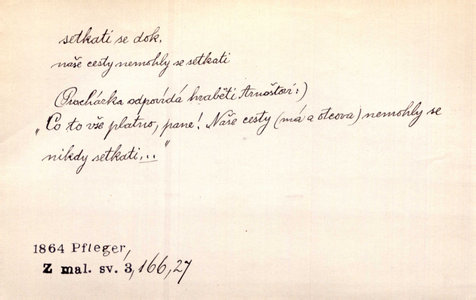 setkati se dok.
naše cesty nemohly se setkati
(Procházka odpovídá hraběti Arnoštovi:)
„Co to vše platno, pane! Naše cesty (má a otcova) nemohly se
nikdy setkati..."
1864 Pfleger,
Z mal. sv. 3, 166, 27